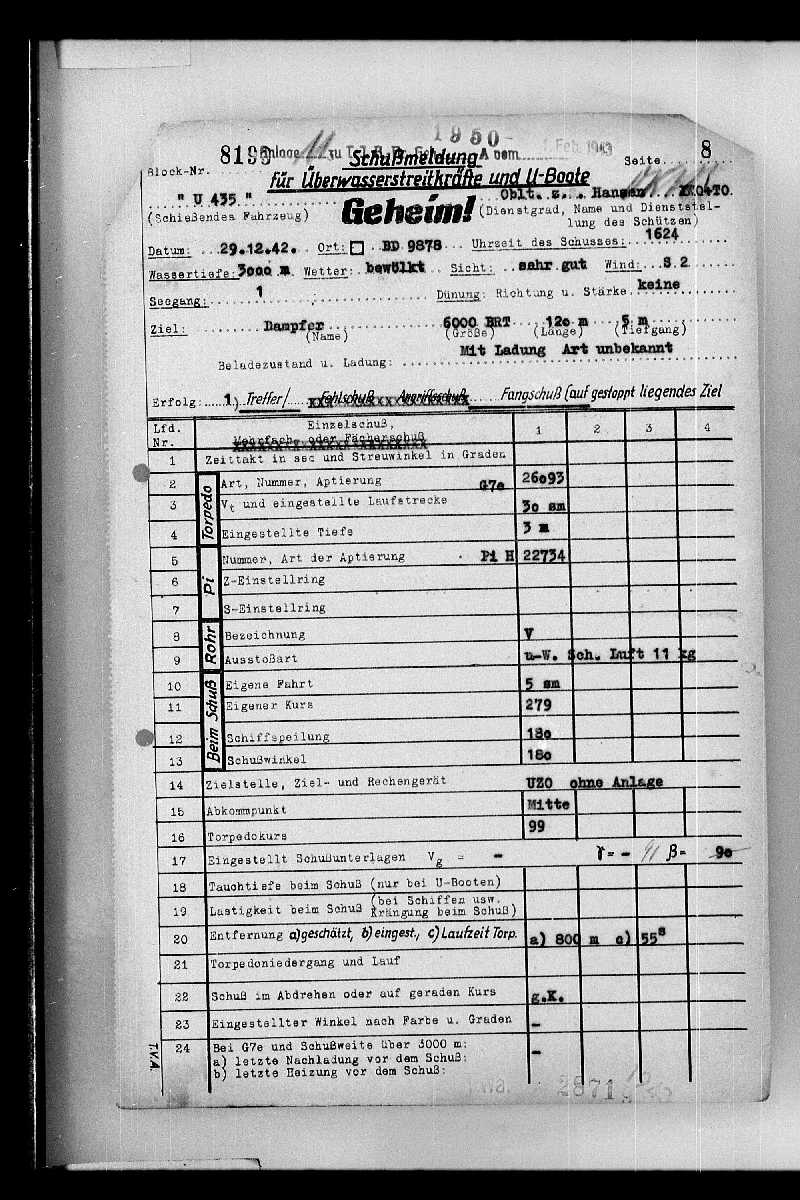 1950-
8195 Anlage 11 zu Schußmeldung A vom 1. Feb. 1943 Seite 8
Block-Nr.
für Überwasserstreitkräfte und U-Boote
" U 435 " Oblt. z. S. Hansen
(Schießendes Fahrzeug) Geheim! (Dienstgrad, Name und Dienststel-
lung des Schützen)
Datum: 29.12.42. Ort: BD 9878 Uhrzeit des Schusses: 1624
Wassertiefe: 3000 m Wetter: bewölkt Sicht: sehr gut Wind: S 2
Seegang: 1 Dünung: Richtung u. Stärke keine
Ziel: Dampfer 6000 BRT 12o m 5 m
(Name) (Größe) (Länge) (Tiefgang)
Mit Ladung Art unbekannt
Beladezustand u. Ladung:
Erfolg: 1.) Treffer/ Fehlschuß Angriffsschuß Fangschuß (auf gestoppt liegendes Ziel
Lfd. Nr. Einzelschuß, 1 2 3 4
Mehrfach- oder Fächerschuß
1 Zeittakt in sec und Streuwinkel in Graden
Torpedo
2 Art, Nummer, Aptierung G7e 26o93
3 Vt und eingestellte Laufstrecke 3o sm
4 Eingestellte Tiefe 3 m
Pi
5 Nummer, Art der Aptierung Pi H 22734
6 Z-Einstellring
7 S-Einstellring
Rohr
8 Bezeichnung V
9 Ausstoßart u-W. Sch. Luft 11 kg
Beim Schuß
10 Eigene Fahrt 5 sm
11 Eigener Kurs 279
12 Schiffspeilung 18o
13 Schußwinkel 18o
14 Zielstelle, Ziel- und Rechengerät UZO ohne Anlage
15 Abkommpunkt Mitte
16 Torpedokurs 99
17 Eingestellt Schußunterlagen Vg = - γ = - 91 β = 9o
18 Tauchtiefe beim Schuß (nur bei U-Booten)
19 Lastigkeit beim Schuß (bei Schiffen usw. Krängung beim Schuß)
20 Entfernung a) geschätzt, b) eingest., c) Laufzeit Torp. a) 800 m c) 55s
21 Torpedoniedergang und Lauf
22 Schuß im Abdrehen oder auf geraden Kurs g.K.
23 Eingestellter Winkel nach Farbe u. Graden -
24 Bei G7e und Schußweite über 3000 m: -
a) letzte Nachladung vor dem Schuß:
b) letzte Heizung vor dem Schuß:
T.V.A.
2871